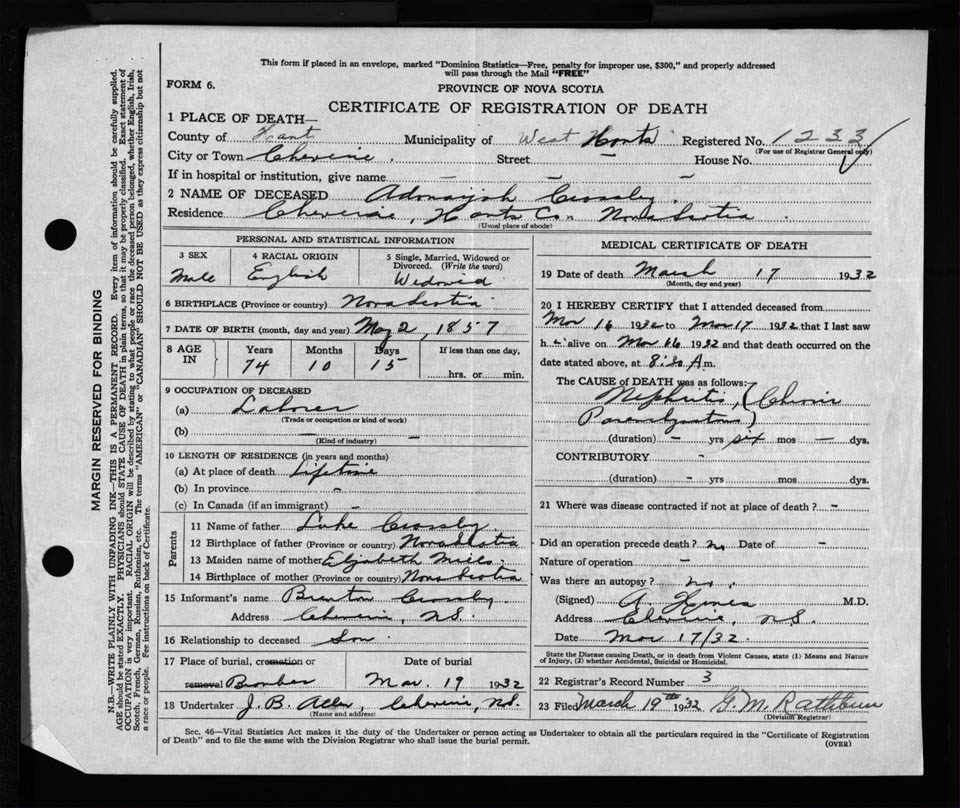 This form if placed in an envelope, marked "Dominion Statistics—Free, penalty for improper use, $300," and properly addressed
will pass through the Mail "FREE"
FORM 6.
PROVINCE OF NOVA SCOTIA
CERTIFICATE OF REGISTRATION OF DEATH
1 PLACE OF DEATH—
County of Hants Municipality of West Hants Registered No. 1233
(For use of Registrar General only)
City or Town Cheverie. Street – House No.
If in hospital or institution, give name – – –
2 NAME OF DECEASED Adonaijah Crossley
Residence Cheverie, Hants Co. Nova Scotia
(Usual place of abode)
PERSONAL AND STATISTICAL INFORMATION
3 SEX 4 RACIAL ORIGIN 5 Single, Married, Widowed or
Divorced. (Write the word)
Male English Widowed
6 BIRTHPLACE (Province or country) Nova Scotia
7 DATE OF BIRTH (month, day and year) May 2, 1857
8 AGE IN Years Months Days If less than one day,
74 10 15 hrs. or min.
9 OCCUPATION OF DECEASED
(a) Laborer
(Trade or occupation or kind of work)
(b) – –
(Kind of industry)
10 LENGTH OF RESIDENCE (in years and months)
(a) At place of death Lifetime
(b) In province –
(c) In Canada (if an immigrant) –
Parents
11 Name of father Luke Crossley
12 Birthplace of father (Province or country) Nova Scotia
13 Maiden name of mother Elizabeth
14 Birthplace of mother (Province or country) Nova Scotia
15 Informant's name Crossley
Address Cheverie, N.S.
16 Relationship to deceased Son
17 Place of burial, cremation or Date of burial
removal Mar. 19 1932
18 Undertaker J. B. Cheverie, N.S.
(Name and address)
MEDICAL CERTIFICATE OF DEATH
19 Date of death March 17 1932
(Month, day and year)
20 I HEREBY CERTIFY that I attended deceased from
Mar 16 1932 to Mar 17 1932 that I last saw
h alive on Mar 16 1932 and that death occurred on the
date stated above, at 8:30 A m.
The CAUSE OF DEATH was as follows:
Nephritis, (Chronic
Parenchymatous)
(duration) – yrs six mos – dys.
CONTRIBUTORY –
(duration) – yrs mos dys.
21 Where was disease contracted if not at place of death? –
Did an operation precede death? no Date of –
Nature of operation –
Was there an autopsy? no.
(Signed) A. M.D.
Address Cheverie, N.S.
Date Mar 17/32
State the Disease causing Death, or in death from Violent Causes, state (1) Means and Nature
of Injury, (2) whether Accidental, Suicidal or Homicidal.
22 Registrar's Record Number 3
23 Filed March 19th 1932 G. M. Rathbun
(Division Registrar)
Sec. 46—Vital Statistics Act makes it the duty of the Undertaker or person acting as Undertaker to obtain all the particulars required in the "Certificate of Registration
of Death" and to file the same with the Division Registrar who shall issue the burial permit.
(OVER)
MARGIN RESERVED FOR BINDING
N.B.—WRITE PLAINLY WITH UNFADING INK—THIS IS A PERMANENT RECORD. Every item of information should be carefully supplied.
AGE should be stated EXACTLY. PHYSICIANS should STATE CAUSE OF DEATH in plain terms, so that it may be properly classified. Exact statement of
OCCUPATION is very important. RACIAL ORIGIN will be described by stating to what people or race the deceased person belonged, whether English, Irish,
Scotch, French, German, Russian, Ruthenian, etc. The terms "AMERICAN" or "CANADIAN" SHOULD NOT BE USED as they express citizenship but not
a race or people. Fee instructions on back of Certificate.